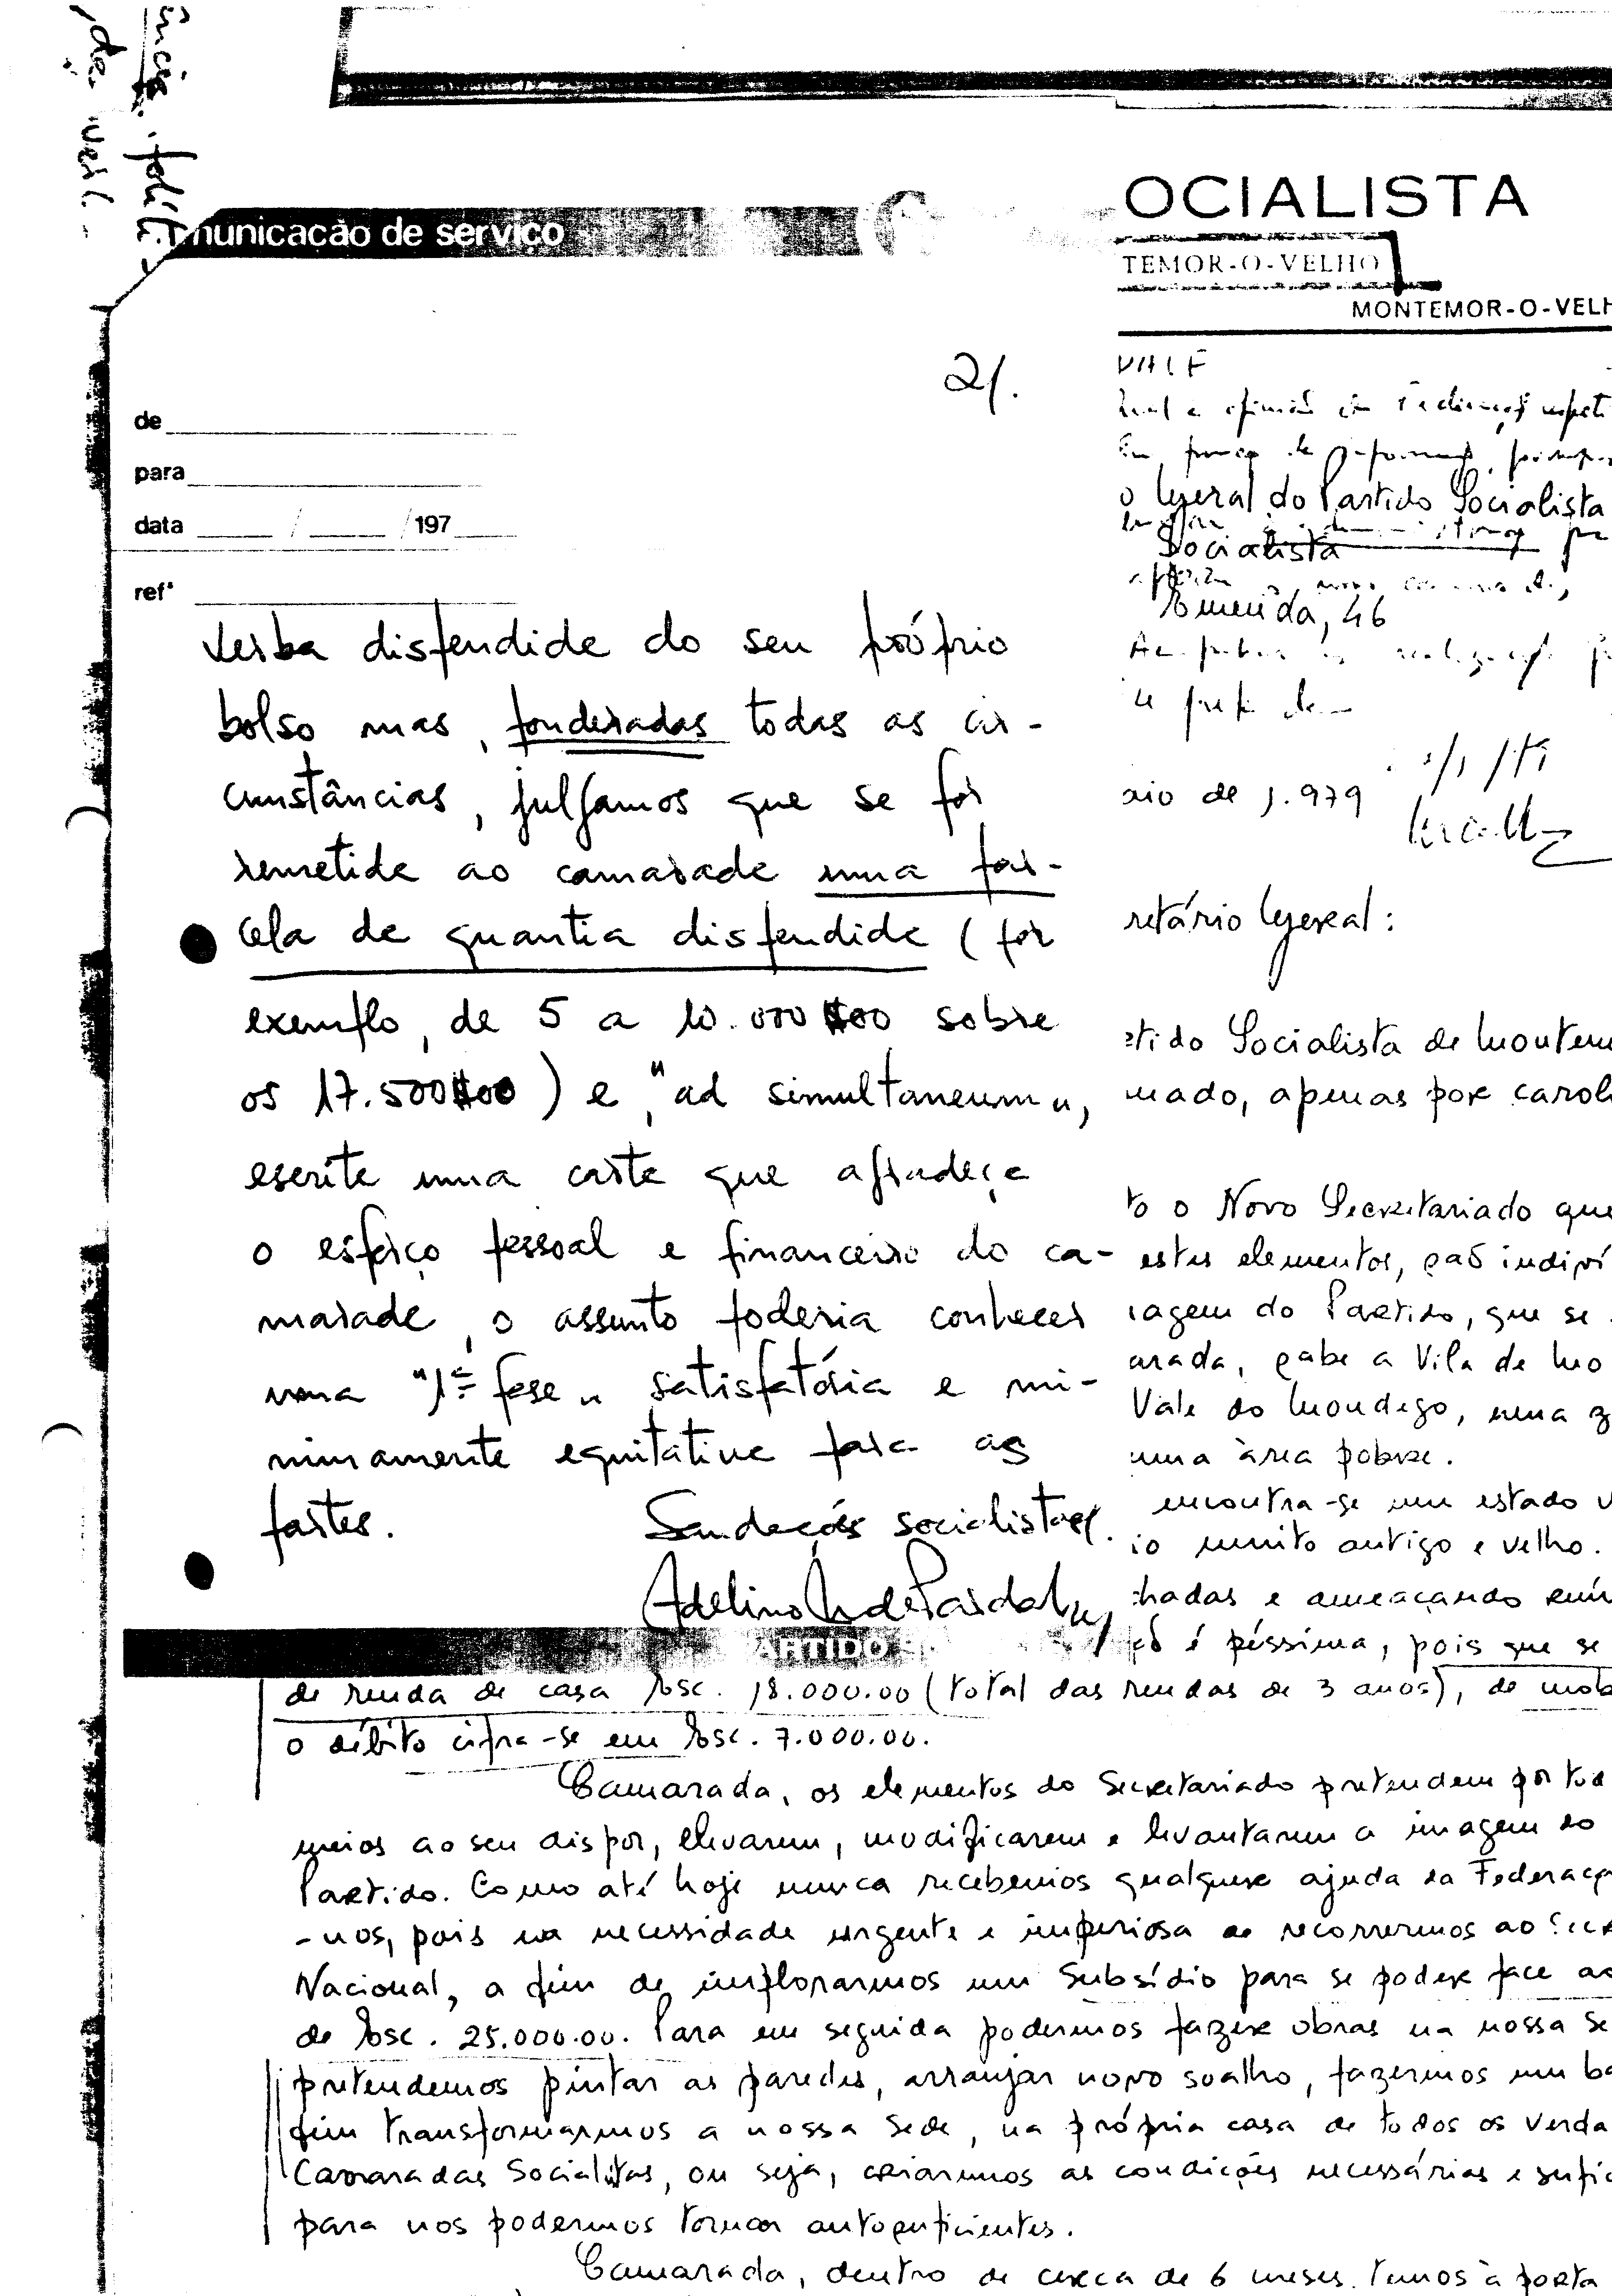 municação de serviço
2/.
de
para
data / /197
refª
verba dispendida do seu próprio
bolso mas, ponderadas todas as cir-
cunstâncias, julgamos que se for
remetida ao camarada uma par-
cela da quantia dispendida (por
exemplo, de 5 a 10.000$00 sobre
os 17.500$00) e, "ad simultaneum",
escrita uma carta que agradeça
o esforço pessoal e financeiro do ca-
marada, o assunto poderia conhecer
uma "1ª fase" satisfatória e mi-
nimamente equitativa para as
partes.
Saudações socialistas.
PARTIDO S
OCIALISTA
TEMOR-O-VELHO
MONTEMOR-O-VELH
o Geral do Partido Socialista
Socialista
Emenda, 46
aio de 1.979
retário Geral:
tido Socialista de Montem
mado, apenas por carol
to o Novo Secretariado que
estes elementos, são indiví
iagem do Partido, que se
arada, sabe a Vila de Mo
Vale do Mondego, numa z
uma àrea pobre.
encontra-se num estado
io muito antigo e velho.
hadas e ameaçando ruín
é péssima, pois que se
de renda de casa Esc. 18.000.00 (total das rendas de 3 anos), de mob
o débito cifra-se em Esc. 7.000.00.
Camarada, os elementos do Secretariado pretendem por tod
meios ao seu dispor, elevarem, modificarem e levantarem a imagem do
Partido. Como até hoje nunca recebemos qualquer ajuda da Federaçã
-nos, pois na necessidade urgente e imperiosa de recorrermos ao Secr
Nacional, a fim de implorarmos um Subsídio para se poder face ao
de Esc. 25.000.00. Para em seguida podermos fazer obras na nossa Se
pretendemos pintar as paredes, arranjar novo soalho, fazermos um ba
fim transformarmos a nossa Sede, na própria casa de todos os Verda
Camaradas Socialistas, ou seja, criarmos as condições necessárias e sufic
para nos podermos tornar autosuficientes.
Camarada, dentro de cerca de 6 meses, temos à porta